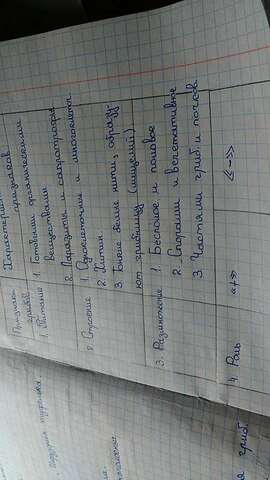 Характерис
признаков
Признак
грибов
1. Питание 1. Готовыми органическими
веществами
2. Паразиты и сапротрофы
2. Строение 1. Одноклеточные и многоклеточ.
2. Хитин
3. Тонкие белые нити, образу-
ют грибницу (мицелий)
3. Размножение 1. Бесполое и половое
2. Спорами и вегетативное
3 Частями гриб. и почков.
4. Роль «+» «-»
туфелька.
гриб.